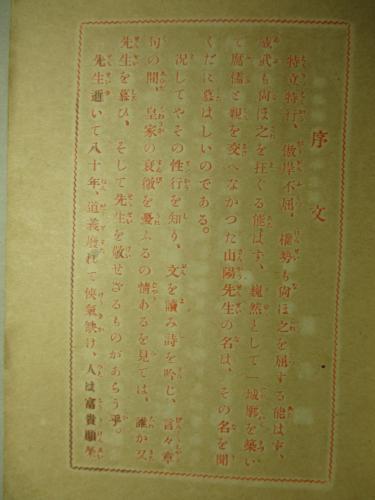 序文
特立特行、傲岸不屈、權勢も尙ほ之を屈する能はず、
威武も尙ほ之を抂ぐる能はず、巍然として一城廓を築い
て腐儒と親を交へなかつた山陽先生の名は、その名を聞
くだに慕はしいのである。
況してやその性行を知り、文を讀み詩を吟じ、言々章
句の間、皇家の衰微を憂ふるの情あるを見ては、誰か又
先生を慕ひ、そして先生を敬せざるものがあらう乎。
先生逝いて八十年、道義廢れて俠氣缺け、人は富貴顯榮